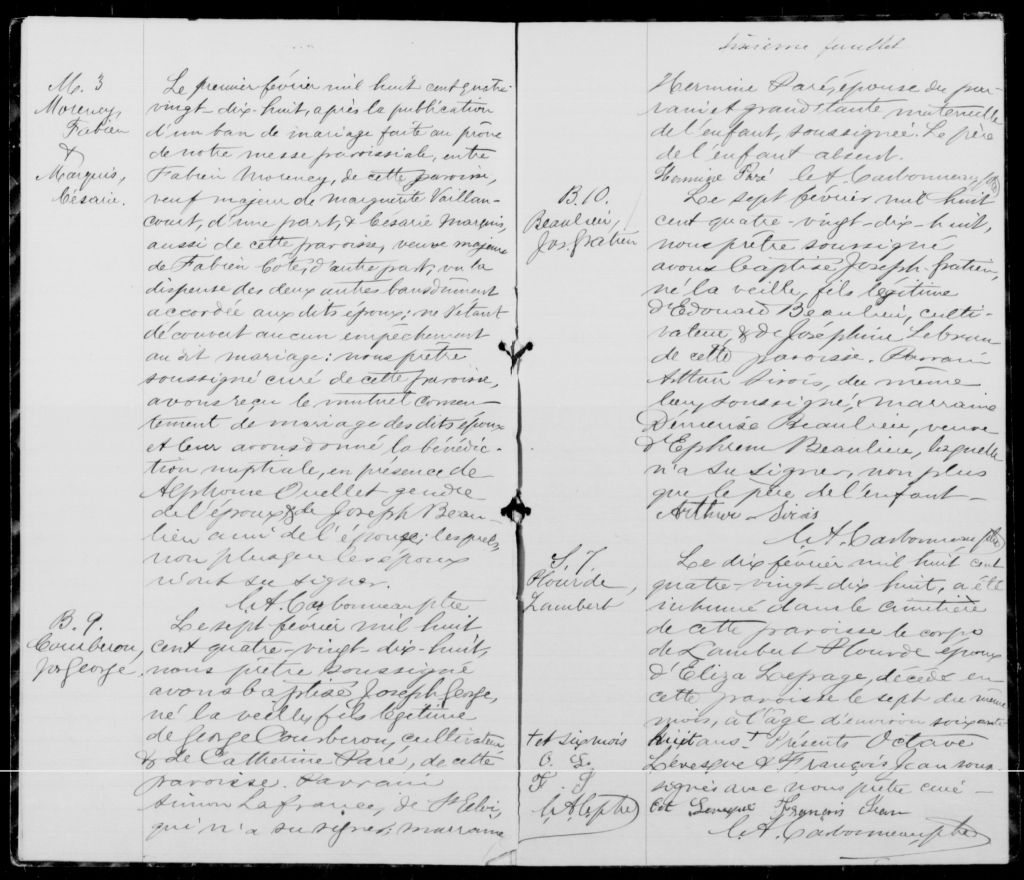 M. 3
Morency,
Fabien
&
Marquis,
Césarie.
Le premier février mil huit cent quatre
vingt-dix-huit, après la publication
d'un ban de mariage faite au prône
de notre messe paroissiale, entre
Fabien Morency, de cette paroisse,
veuf majeur de Marguerite Vaillan-
court, d'une part, & Césarie Marquis,
aussi de cette paroisse, veuve majeure
de Fabien Côté, d'autre part; vu la
dispense des deux autres bans dûment
accordée aux dits époux; ne s'étant
découvert aucun empêchement
au dit mariage: nous prêtre
soussigné curé de cette paroisse,
avons reçu le mutuel consen-
tement de mariage des dits époux
et leur avons donné la bénédic-
tion nuptiale, en présence de
Alphonse Ouellet gendre
de l'époux & de Joseph Beau-
lieu ami de l'épouse; lesquels
non plus que les époux
n'ont su signer.
C. A. Carbonneau ptre
B. 9.
Couberon,
Jos George.
Le sept février mil huit
cent quatre-vingt-dix-huit,
nous prêtre soussigné
avons baptisé Joseph George,
né la veille, fils légitime
de George Couberon, cultivateur
& de Catherine Paré, de cette
paroisse. Parrain
Simon Lafrance, de St Eloi,
qui n'a su signer; marraine
sixième feuillet
Hermine Paré, épouse du par-
rain et grand'tante maternelle
de l'enfant, soussignée. Le père
de l'enfant absent.
Hermine Paré C. A. Carbonneau ptre
B. 10.
Beaulieu,
Jos. Gratien
Le sept février mil huit
cent quatre-vingt-dix-huit,
nous prêtre soussigné
avons baptisé Joseph Gratien,
né la veille, fils légitime
d'Edouard Beaulieu, culti-
vateur, & de Joséphine Lebrun
de cette paroisse. Parrain
Arthur Sirois, du même
lieu, soussigné; marraine
Démerise Beaulieu, veuve
d'Ephrem Beaulieu, laquelle
n'a su signer, non plus
que le père de l'enfant-
Arthur Sirois
C. A. Carbonneau ptre
S. 7.
Plourde,
Lambert
Le dix février mil huit cent
quatre-vingt-dix huit, a été
inhumé dans le cimetière
de cette paroisse le corps
de Lambert Plourde époux
d'Eliza Lepage, décédé en
cette paroisse le sept du même
mois, à l'âge d'environ soixante
huit ans + Présents Octave
Levesque & François Jean sous-
signés avec nous prêtre curé-
Oct Levesque François Jean
C. A. Carbonneau ptre
+ et six mois
O. L.
F. J.
C. A. C. ptre